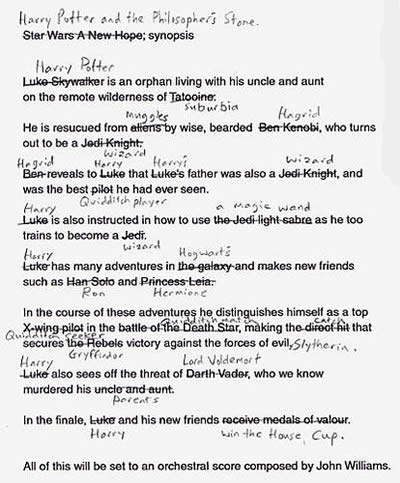 Harry Potter and the Philosopher's Stone.
Star Wars A New Hope; synopsis
Harry Potter
Luke Skywalker is an orphan living with his uncle and aunt
on the remote wilderness of Tatooine.
suburbia
muggles Hagrid
He is resucued from aliens by wise, bearded Ben Kenobi, who turns
out to be a Jedi Knight.
wizard
Hagrid Harry Harry's Wizard
Ben reveals to Luke that Luke's father was also a Jedi Knight, and
was the best pilot he had ever seen.
Quidditch player
Harry a magic wand
Luke is also instructed in how to use the Jedi light sabre as he too
trains to become a Jedi.
wizard
Harry Hogwart's
Luke has many adventures in the galaxy and makes new friends
such as Han Solo and Princess Leia.
Ron Hermione
In the course of these adventures he distinguishes himself as a top
Quidditch match catch
X-wing pilot in the battle of the Death Star, making the direct hit that
Quidditch seeker
secures the Rebels victory against the forces of evil, Slytherin.
Gryffindor
Harry Lord Voldemort
Luke also sees off the threat of Darth Vader, who we know
murdered his uncle and aunt.
parents
In the finale, Luke and his new friends receive medals of valour.
Harry win the House Cup.
All of this will be set to an orchestral score composed by John Williams.